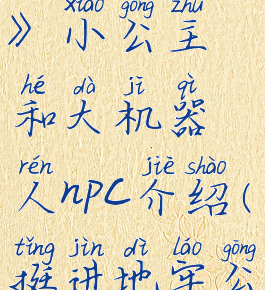 xiǎo gōng zhǔ
》小公主
hé dà jī qì
和大机器
rén jiè shào
人npc介绍(
tǐng jìn dì láo gōng
挺进地牢公